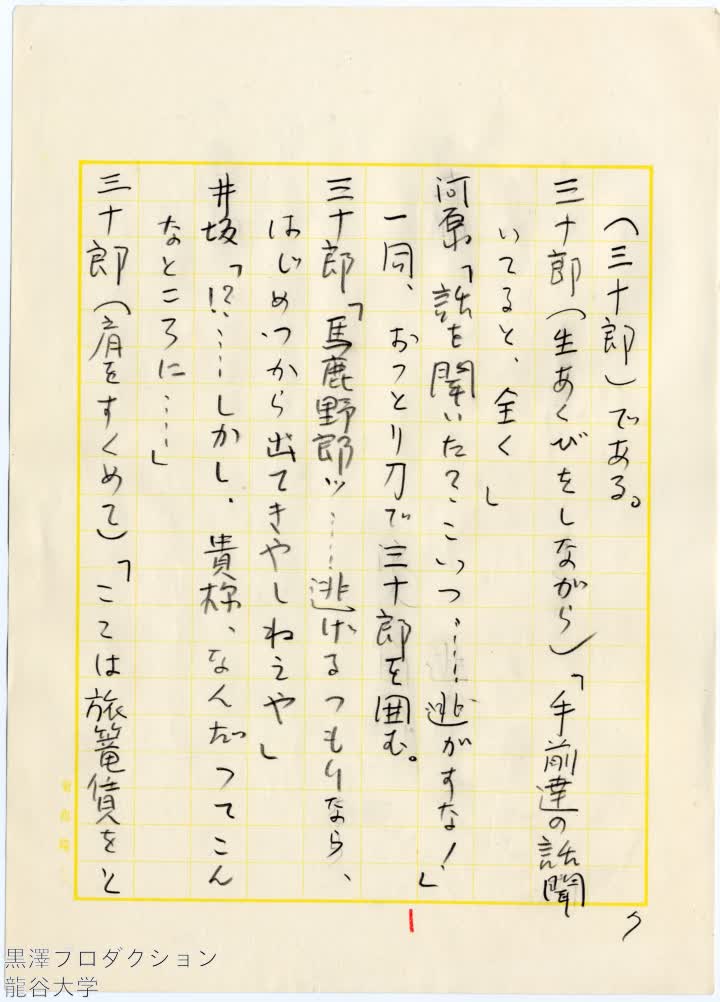 （三十郎）である。
三十郎（生あくびをしながら）「手前達の話聞
いてると、全く」
河原「話を聞いた？こいつ、……逃がすな！」
一同、おっとり刀で三十郎を囲む。
三十郎「馬鹿野郎ッ……逃げるつもりなら、
はじめつから出てきやしねえや」
井坂「!?……しかし、貴様、なんだつてこん
なところに……」
三十郎（肩をすくめて）「こゝは旅篭賃をと
黒澤プロダクション
龍谷大学